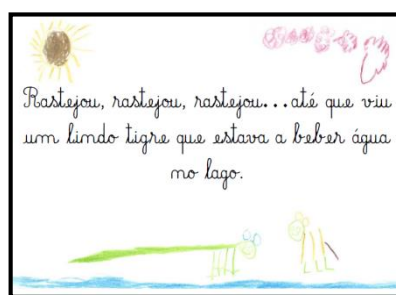 Rastejou, rastejou, rastejou...até que viu
um lindo tigre que estava a beber água
no lago.